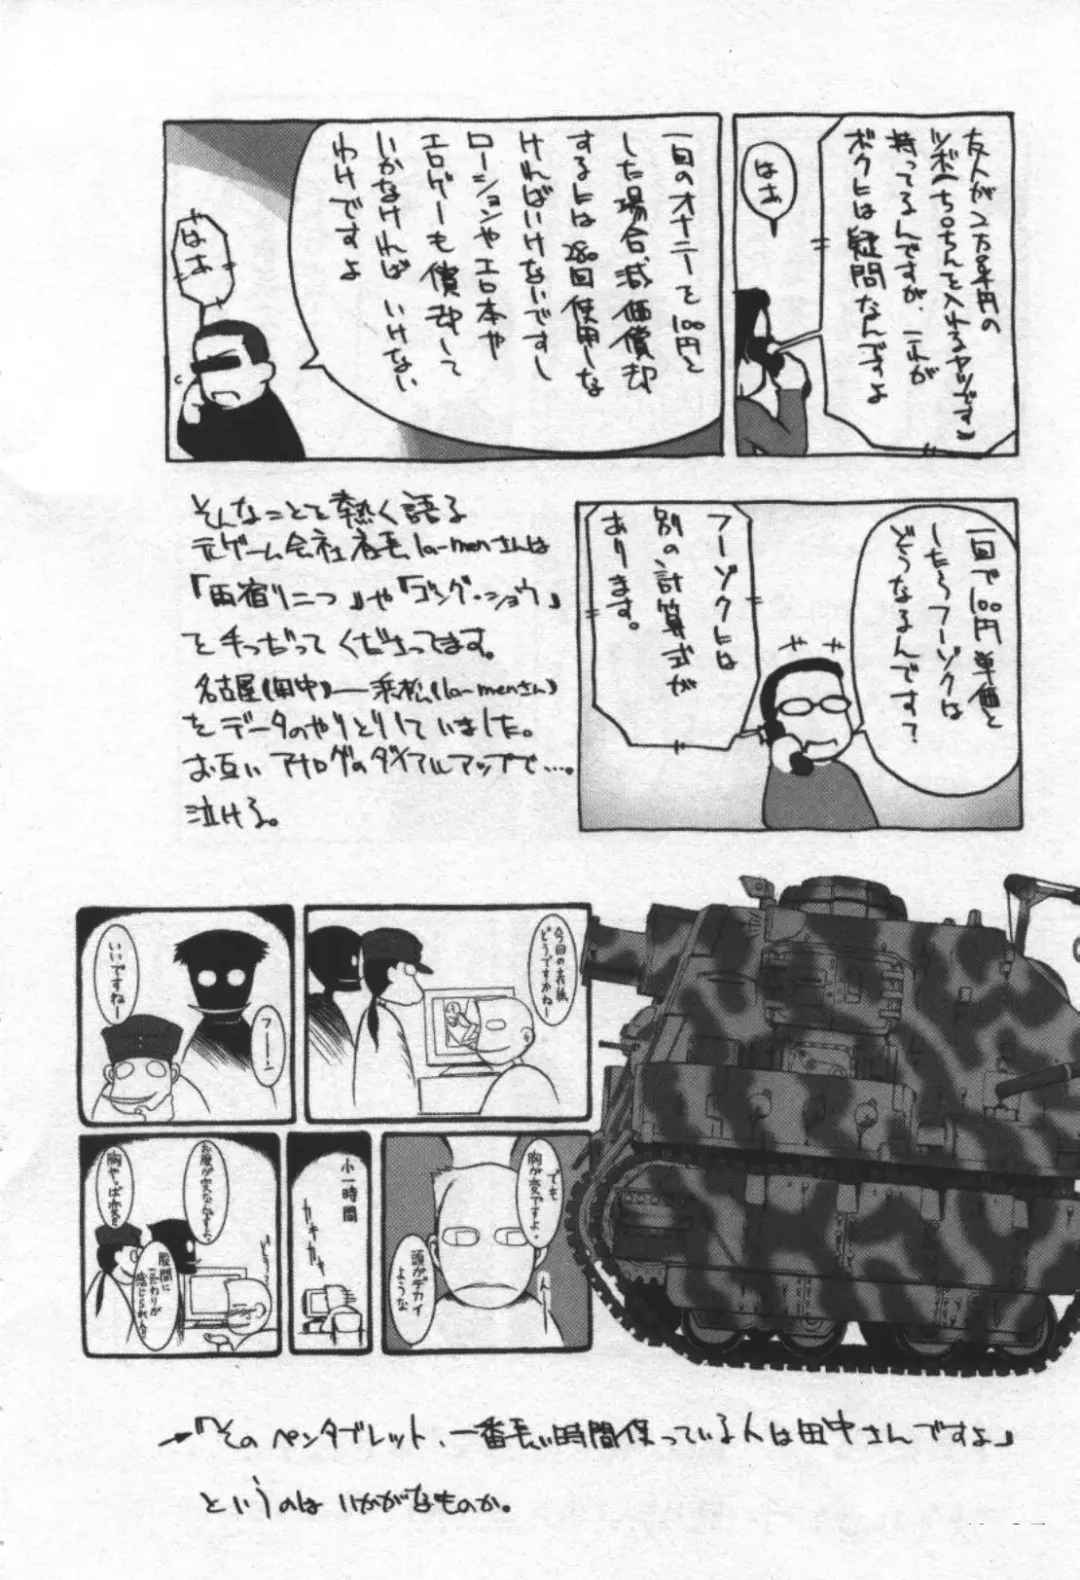 友人が2万8千円の
ツボ(ち○ちんを入れるヤツです)
持ってるんですが、これが
ボクには疑問なんですよ
はあ
一回のオナニーを100円と
した場合減価償却
するには280回使用しな
ければいけないですし
ローションやエロ本や
エロゲーも償却して
いかなければいけない
わけですよ
はあ
一回で100円単価と
したらフーゾクは
どうなるんです?
フーゾクには
別の計算式が
あります。
そんなことを熱く語る
元ゲーム会社社長la-menさんは
「雨宿りニつ」や「ゴング・ショウ」
を手つだってくださってます。
名古屋(田中)―浜松(la-menさん)
をデータのやりとりしていました。
お互いアナログのダイアルアップで…。
泣ける。
今回の表紙
どうですかねー
いいですねー
フー!ン
でも
胸が変ですよ。
頭がデカイ
ような
小一時間
カキカキ
お腹が変なんですよ
胸やっぱ変だ
股間に
こだわりが
感じられん
→「そのペンタブレット、一番長い時間使っている人は田中さんですよ」
というのはいかがなものか。